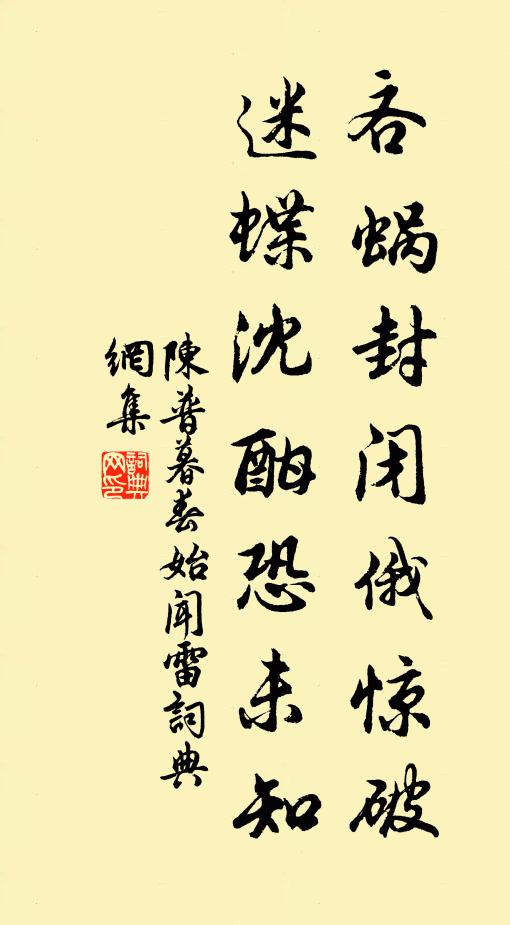 吝蜗封闭俄惊破
迷蝶沈酣恐未知
陳普暮春始闻雷詞典
網集
詞典网印